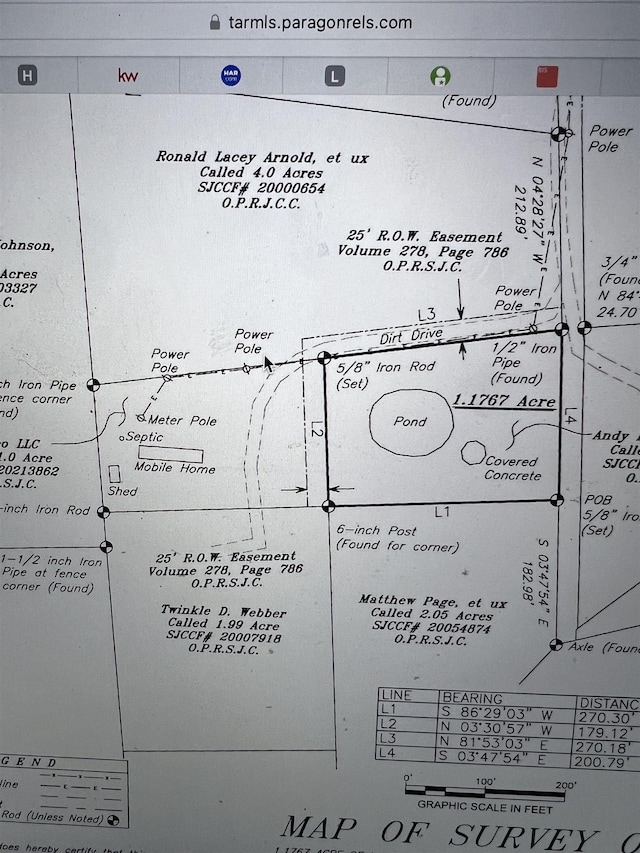 tarmls.paragonrels.com
H
kw
HAR
.com
L
(Found)
Power
Pole
Ronald Lacey Arnold, et ux
Called 4.0 Acres
SJCCF# 20000654
O.P.R.J.C.C.
N 04°28'27" W
212.89'
25' R.O.W. Easement
Volume 278, Page 786
O.P.R.S.J.C.
Johnson,
Acres
03327
C.
3/4"
(Found
N 84°
24.70
Power
Pole
L3
Dirt Drive
Power
Pole
Power
Pole
5/8" Iron Rod
(Set)
1/2" Iron
Pipe
(Found)
1.1767 Acre
ch Iron Pipe
ence corner
nd)
Meter Pole
Septic
Mobile Home
Shed
L2
Pond
Covered
Concrete
L4
Andy
Calle
SJCCF
O.
o LLC
1.0 Acre
20213862
.S.J.C.
-inch Iron Rod
L1
POB
5/8" Iro
(Set)
6-inch Post
(Found for corner)
1-1/2 inch Iron
Pipe at fence
corner (Found)
25' R.O.W. Easement
Volume 278, Page 786
O.P.R.S.J.C.
S 03°47'54" E
182.98'
Twinkle D. Webber
Called 1.99 Acre
SJCCF# 20007918
O.P.R.S.J.C.
Matthew Page, et ux
Called 2.05 Acres
SJCCF# 20054874
O.P.R.S.J.C.
Axle (Foun
LINE BEARING DISTANC
L1 S 86°29'03" W 270.30'
L2 N 03°30'57" W 179.12'
L3 N 81°53'03" E 270.18'
L4 S 03°47'54" E 200.79'
0' 100' 200'
GRAPHIC SCALE IN FEET
GEND
line
Rod (Unless Noted)
MAP OF SURVEY O
does hereby certify that th